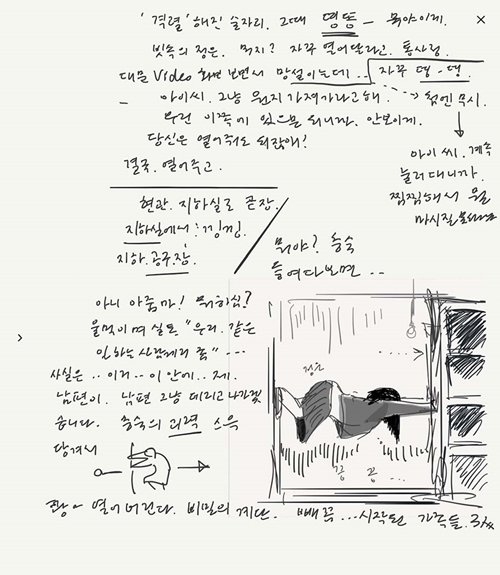 '격렬'해진 술자리. 그때 띵똥 — 뭐야 이게. ×
빗속의 정은. 뭐지? 자꾸 열어달라고. 통사정.
대문 Video 화면 보면서 망설이는데.. 자꾸 띵-띵.
— 아이씨. 그냥 뭔지 가져가라고 해. 첨엔 무시.
우린 이쪽에 있으면 되니까. 안보이게.
당신은 열어줘도 되잖아!
결국. 열어주고.
아이 씨. 계속
눌러 대니까.
찜찜해서 술
현관. 지하실로 곧장.
지하실에서 : 낑낑.
지하.공구.장
뭐야? 충숙
들여다보면 ..
아니 아줌마! 뭐하심?
울먹이며 실은 "우리. 같은
일하는 사람에게 좀" ---
사실은 .. 이거.. 이 안에.. 제.
남편이. 남편 그냥 데리고 나가겠
습니다. 충숙의 괴력 스윽
당겨서
정은
끙 끙 ..
쾅~ 열어버린다. 비밀의 계단. 빼꼭 ...시작된 가족들.